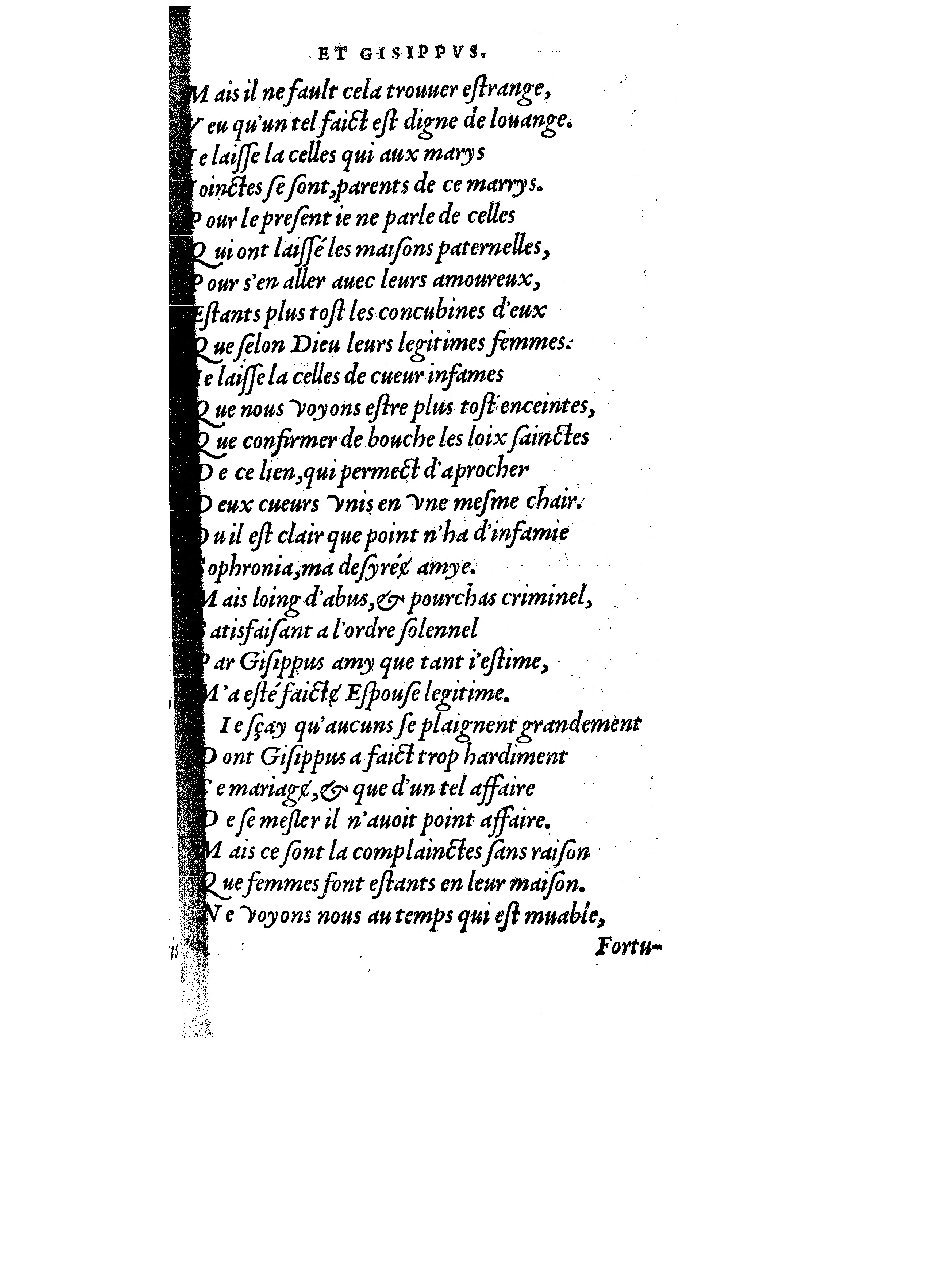 ET GISIPPVS.
Mais il ne fault cela trouuer eſtrange,
Veu qu'un tel faict eſt digne de louange.
Ie laiſſe la celles qui aux marys
Ioinctes ſe ſont, parents de ce marrys.
Pour le preſent ie ne parle de celles
Qui ont laiſſé les maiſons paternelles,
Pour s'en aller auec leurs amoureux,
Eſtants plus toſt les concubines d'eux
Que ſelon Dieu leurs legitimes femmes:
Ie laiſſe la celles de cueur infames
Que nous voyons eſtre plus toſt enceintes,
Que confirmer de bouche les loix ſainctes
De ce lien, qui permect d'aprocher
Deux cueurs vnis en vne meſme chair.
Ou il eſt clair que point n'ha d'infamie
Sophronia, ma deſyréɇ amye.
Mais loing d'abus, & pourchas criminel,
Satisfaiſant a l'ordre ſolennel
Par Giſippus amy que tant i'eſtime,
M'a eſté faictɇ Eſpouſe legitime.
Ie ſçay qu'aucuns ſe plaignent grandement
Dont Giſippus a faict trop hardiment
Ce mariagɇ, & que d'un tel affaire
De ſe meſler il n'auoit point affaire.
Mais ce ſont la complainctes ſans raiſon
Que femmes font eſtants en leur maiſon.
Ne voyons nous au temps qui eſt muable,
Fortu-